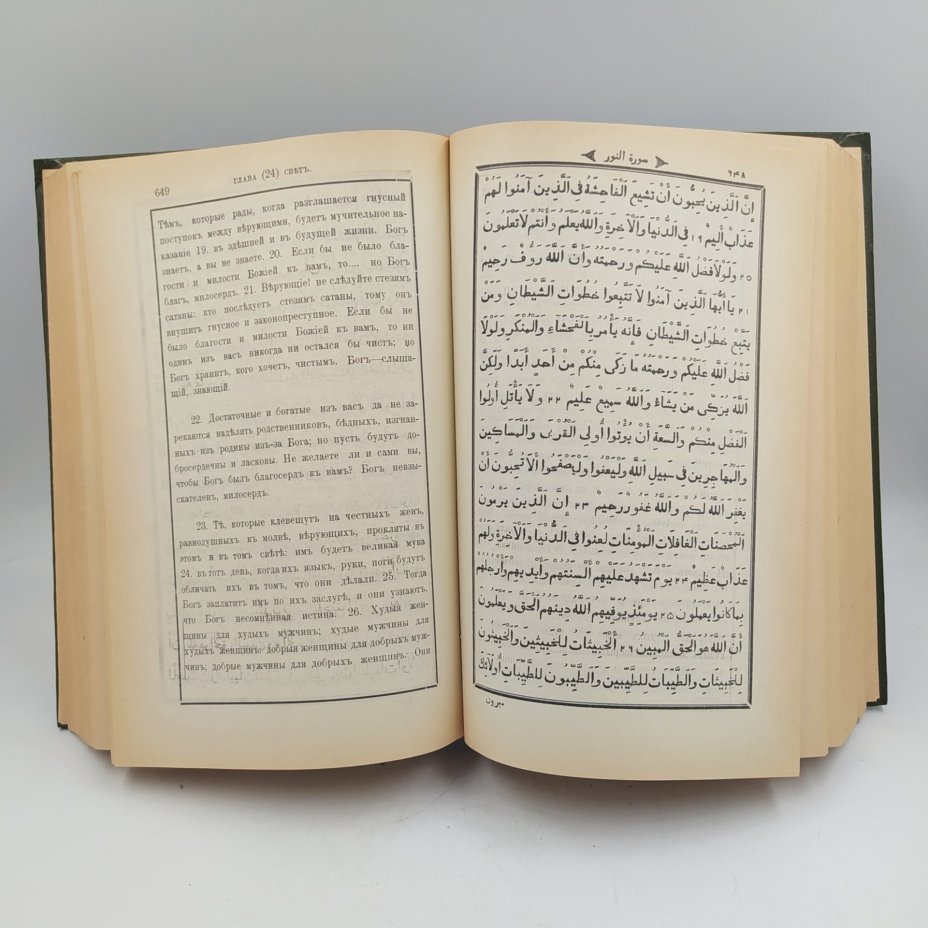 649
ГЛАВА (24) СВѢТЪ.
Тѣмъ, которые рады, когда разглашается гнусный
поступокъ между вѣрующими, будетъ мучительное на-
казаніе 19. въ здѣшней и въ будущей жизни. Богъ
знаетъ, а вы не знаете. 20. Если бы не было бла-
гости и милости Божіей къ вамъ, то.... но Богъ
благъ, милосердъ. 21. Вѣрующіе! не слѣдуйте стезямъ
сатаны: кто послѣдуетъ стезямъ сатаны, тому онъ
внушитъ гнусное и законопреступное. Если бы не
было благости и милости Божіей къ вамъ, то ни
одинъ изъ васъ никогда ни остался бы чистъ; но
Богъ хранитъ, кого хочетъ, чистымъ. Богъ—слыша-
щій, знающій.
22. Достаточные и богатые изъ васъ да не за-
рекаются надѣлять родственниковъ, бѣдныхъ, изгнан-
ныхъ изъ родины изъ-за Бога; но пусть будутъ до-
бросердечны и ласковы. Не желаете ли и сами вы,
чтобы Богъ былъ благосердъ къ вамъ? Богъ невзы-
скателенъ, милосердъ.
23. Тѣ, которые клевещутъ на честныхъ женъ,
равнодушныхъ къ молвѣ, вѣрующихъ, прокляты въ
этомъ и въ томъ свѣтѣ: имъ будетъ великая мука
24. въ тотъ день, когда ихъ языкъ, руки, ноги будутъ
обличать ихъ въ томъ, что они дѣлали. 25. Тогда
Богъ заплатитъ имъ по ихъ заслугѣ, и они узнаютъ,
что Богъ несомнѣнная истина. 26. Худыя жен-
щины для худыхъ мужчинъ; худые мужчины для
худыхъ женщинъ: добрыя женщины для добрыхъ муж-
чинъ, добрые мужчины для добрыхъ женщинъ. Они
سورة النور
٦٤٨
إِنَّ الَّذِينَ يُحِبُّونَ أَنْ تَشِيعَ الْفَاحِشَةُ فِي الَّذِينَ آمَنُوا لَهُمْ
عَذَابٌ أَلِيمٌ ١٩ فِي الدُّنْيَا وَالْآخِرَةِ وَاللَّهُ يَعْلَمُ وَأَنْتُمْ لَا تَعْلَمُونَ
٢٥ وَلَوْلَا فَضْلُ اللَّهِ عَلَيْكُمْ وَرَحْمَتُهُ وَأَنَّ اللَّهَ رَوُفٌ رَحِيمٌ
٢١ يَا أَيُّهَا الَّذِينَ آمَنُوا لَا تَتَّبِعُوا خُطُوَاتِ الشَّيْطَانِ وَمَنْ
يَتَّبِعْ خُطُوَاتِ الشَّيْطَانِ فَإِنَّهُ يَأْمُرُ بِالْفَحْشَاءِ وَالْمُنْكَرِ وَلَوْلَا
فَضْلُ اللَّهِ عَلَيْكُمْ وَرَحْمَتُهُ مَا زَكَى مِنْكُمْ مِنْ أَحَدٍ أَبَدًا وَلَكِنَّ
اللَّهَ يُزَكِّي مَنْ يَشَاءُ وَاللَّهُ سَمِيعٌ عَلِيمٌ ٢٢ وَلَا يَأْتَلِ أُولُوا
الْفَضْلِ مِنْكُمْ وَالسَّعَةِ أَنْ يُؤْتُوا أُولِي الْقُرْبَى وَالْمَسَاكِينَ
وَالْمُهَاجِرِينَ فِي سَبِيلِ اللَّهِ وَلْيَعْفُوا وَلْيَصْفَحُوا أَلَا تُحِبُّونَ أَنْ
يَغْفِرَ اللَّهُ لَكُمْ وَاللَّهُ غَفُورٌ رَحِيمٌ ٢٣ إِنَّ الَّذِينَ يَرْمُونَ
الْمُحْصَنَاتِ الْغَافِلَاتِ الْمُؤْمِنَاتِ لُعِنُوا فِي الدُّنْيَا وَالْآخِرَةِ وَلَهُمْ
عَذَابٌ عَظِيمٌ ٢٤ يَوْمَ تَشْهَدُ عَلَيْهِمْ أَلْسِنَتُهُمْ وَأَيْدِيهِمْ وَأَرْجُلُهُمْ
بِمَا كَانُوا يَعْمَلُونَ ٢٥ يَوْمَئِذٍ يُوَفِّيهِمُ اللَّهُ دِينَهُمُ الْحَقَّ وَيَعْلَمُونَ
أَنَّ اللَّهَ هُوَ الْحَقُّ الْمُبِينُ ٢٦ الْخَبِيثَاتُ لِلْخَبِيثِينَ وَالْخَبِيثُونَ
لِلْخَبِيثَاتِ وَالطَّيِّبَاتُ لِلطَّيِّبِينَ وَالطَّيِّبُونَ لِلطَّيِّبَاتِ أُولَائِكَ
مبرون